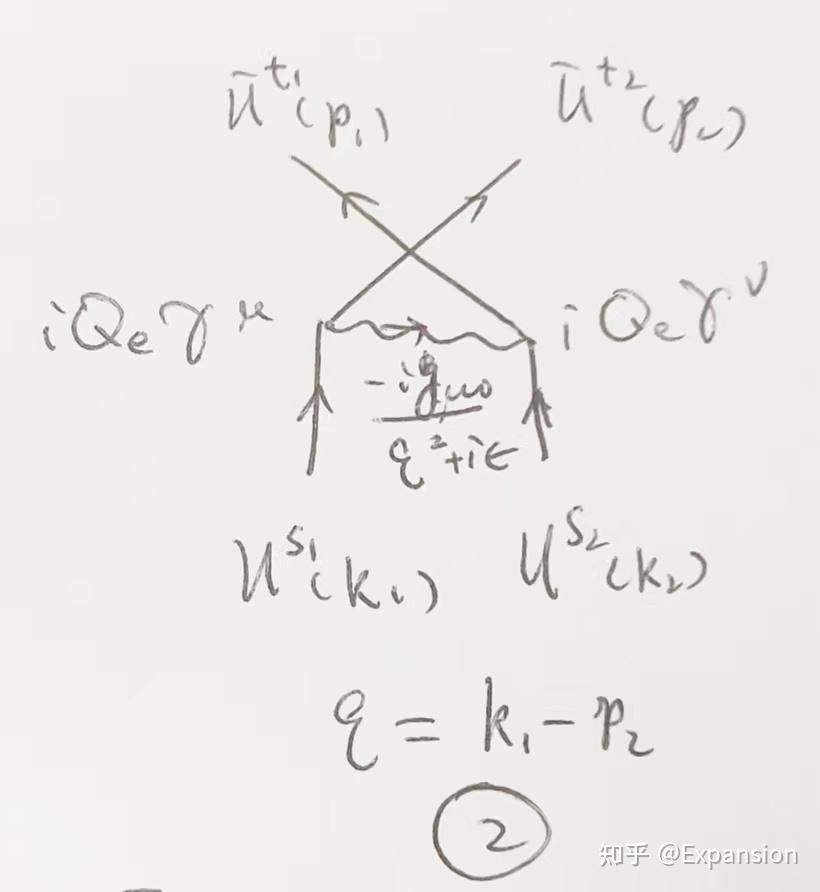 ū^{t₁}(p₁) ū^{t₂}(p₂)
iQ_eγ^μ iQ_eγ^ν
-ig_{μν}
q²+iϵ
u^{s₁}(k₁) u^{s₂}(k₂)
q = k₁ - p₂
②
知乎 @Expansion